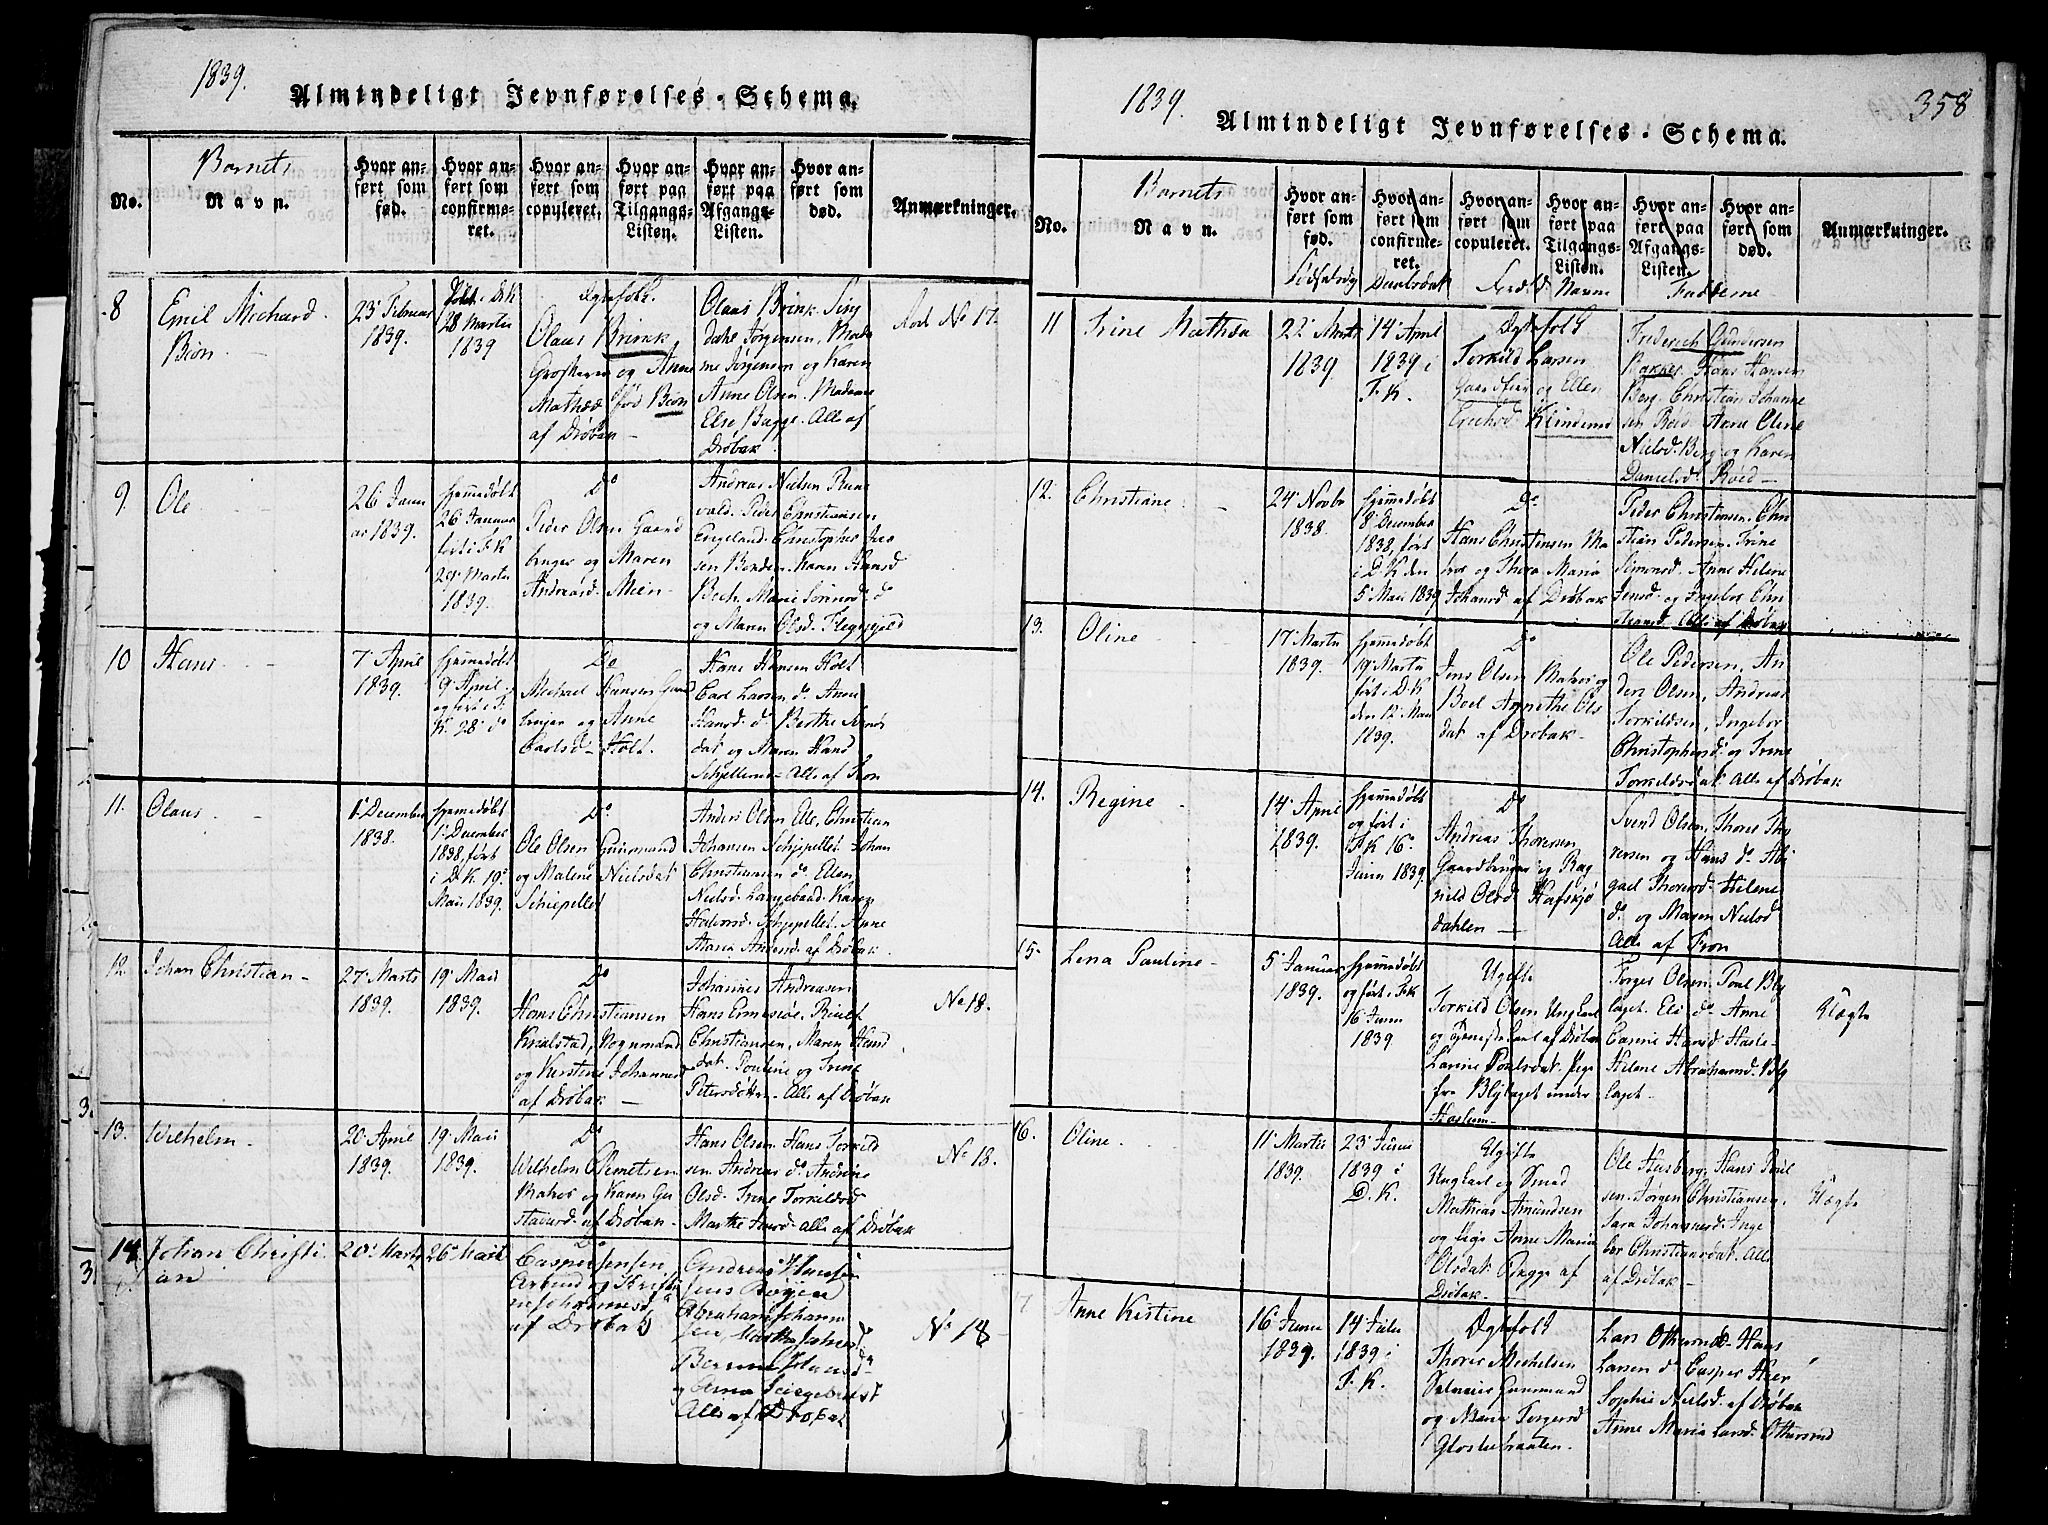 1839.
Almindeligt Jevnførelses-Schema.
Barnets
No.
Navn.
Hvor an-
ført som
fød.
Hvor an-
ført som
confirme-
ret.
Hvor an-
ført som
copuleret.
Hvor an-
ført paa
Tilgangs-
Listen.
Hvor an-
ført paa
Afgangs-
Listen.
Hvor an-
ført som
død.
Anmærkninger.
8
Emil Michard
Bion.
23 Februar
1839.
i D K
28 Martii
1839
Ægtefolk.
Olaus Brink
og Anne
Mathæa fød Bion
af Drøbak
Olaus Brink
Jørgensen, Mada
me Jørgensen og Karen
Anne Olsen. Madame
Else Bagge. Alle af
Drøbak
No 17.
9.
Ole
26 Janu
ar 1839.
hjemmedøbt
26 Januar
ført i F. K
29 Martii
1839.
Do
Peder Olsen Gaard
bruger og Maren
Andreasd. Meien
Andreas Nielsen
Peder Christiansen
Christopher
sen Karen Hansd
Bech. Marie do
og Maren Olsd.
10
Hans
7 April
1839.
hjemmedøbt
9 April
og ført i F.
K. 28 do
Do
Michael Hansen Gaard
bruger og Anne
Carlsd. Holt.
Hans Hansen Holt
Carl Larsen do Anne
Hansd. do Berthe
dat og Maren
Alle af Fron
11.
Olaus
1 December
1838.
hjemmedøbt
1 December
1838, ført
i D K. 19
Mai 1839.
Do
Ole Olsen
og Malene Nielsdat
Schiepellet
Anders Olsen Elle, Christian
Johansen Schjepellet Johan
Christiansen do Ellen
Nielsd. Langebaad Karen
Halvorsd. Schjepellet. Anne
Maria af Drøbak
12
Johan Christian
27 Marts
1839.
19 Mai
1839.
Do
Hans Christiansen
og Kirstine Johannesd
af Drøbak
Johannes Andreasen
Hans
Christiansen, Maren
dat. Pauline og Trine
Petersdøttre. Alle af Drøbak
No 18.
13.
Wilhelm
20 April
1839.
19 Mai
1839.
Do
Wilhelm
Matros og Karen Gu
stavsd. af Drøbak
Hans Olsen Hans Torkild
sen Andreas do Andrine
Olsd. Trine Torkildsd
Marthe Alle af Drøbak
No 18.
14
Johan Christi
an
20 Marts
26 Maii
Do
Casper Jensen
Arbmd og Kristi
ne Johannesd
af Drøbak
Andreas
Jens
Abraham Johann
sen, Martha
Alle af Drøbak
No 18
1839.
358
Almindeligt Jevnførelses-Schema.
Barnets
No.
Navn.
Hvor an-
ført som
fød.
Hvor an-
ført som
confirme-
ret.
Hvor an-
ført som
copuleret.
Hvor an-
ført paa
Tilgangs-
Listen.
Hvor an-
ført paa
Afgangs-
Listen.
Hvor an-
ført som
død.
Anmærkninger.
Fødselsdag
Daabsdat
Foræld. Navne
Fadderne
11
Trine Mathea
22 Marts
1839.
14 April
1839 i
F. K.
Ægtefolk
Torkild Larsen
og Ellen
Ericksd
Frederich Gundersen
Bakker Hans Hansen
Berg. Christian Johanne
sen Røed Anne Oline
Nielsd. Berg og Karen
Danielsd. Røed
12.
Christiane
24 Novbr
1838.
hjemmedøbt
18 December
1838, ført
i D K den
5 Mai 1839
Do
Hans Christensen Ma
tros og Thora Maria
Johansd. af Drøbak
Peder Christensen. Chri
stian Pedersen. Trine
Simonsd. Anne Helene
Jensd. og Ingebor Chri
stiansd. Alle af Drøbak
13.
Oline
17 Martii
1839.
hjemmedøbt
19 Martii
ført i D. K
den 12 Mai
1839.
Do
Jens Olsen Matros og
Boel Agnethe Ols
dat af Drøbak
Ole Pedersen, An
ders Olsen, Andreas
Torkildsen, Ingebor
Christophersd. og Trine
Torkildsdat. Alle af Drøbak
14.
Regine
14 April
1839.
hjemmedøbt
og ført i
F. K 16
Junii 1839.
Do
Andreas Thoresen
Gaardbruger og Rag
nild Olsd. Hafskjø
dahlen
Svend Olsen, Thore Tho
resen og Hans do Abi
gael Thoresd. Helene
do og Maren Nielsd
Alle af Fron
15.
Lena Pauline
5 Januar
1839.
hjemmedøbt
og ført i F. K
16 Junii
1839
Ugifte
Torkild Olsen Ungkarl
og af Drøbak
Larine Poulsdat. Pige
fra Blylaget under
Haslum
Torger Olsen. Poul Bly
laget. Eli do Anne
Helene Abrahamsd. Bly
laget
Uægte
16.
Oline
11 Martii
1839.
23 Junii
1839 i
D. K.
Ugifte
Ungkarl og Smed
Mathias Amundsen
og Pige Anne Maria
Olsdat. Ringe af
Drøbak
Ole Husberg, Hans Poul
sen. Jørgen Christiansen.
Sara Johannesd. Inge
bor Christiansdat. Alle
af Drøbak
Uægte
7
Anne Kistine
16 Junii
1839.
14 Julii
1839 i
F. K.
Ægtefolk
Thorer Michelsen
og Maria Torgersd
Lars Hans
Larsen do Casper Heer
Sophie Nielsd. af Drøbak
Anne Maria Larsd.